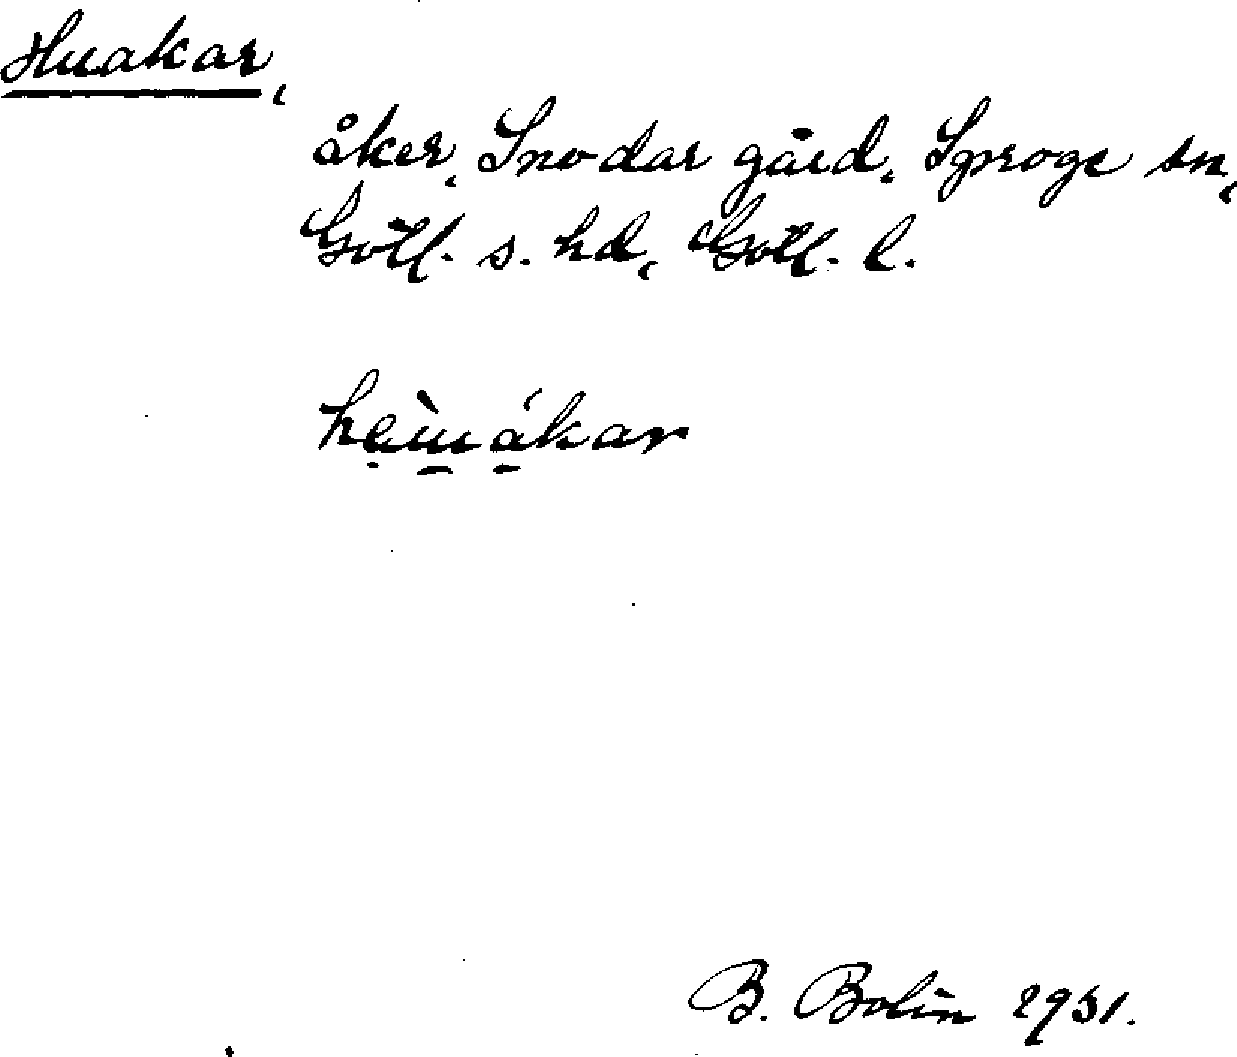 Huakar,
åker, Snodar gård, Sproge sn,
Gotl. s. hd, Gotl. l.
B. Bolin 1931.